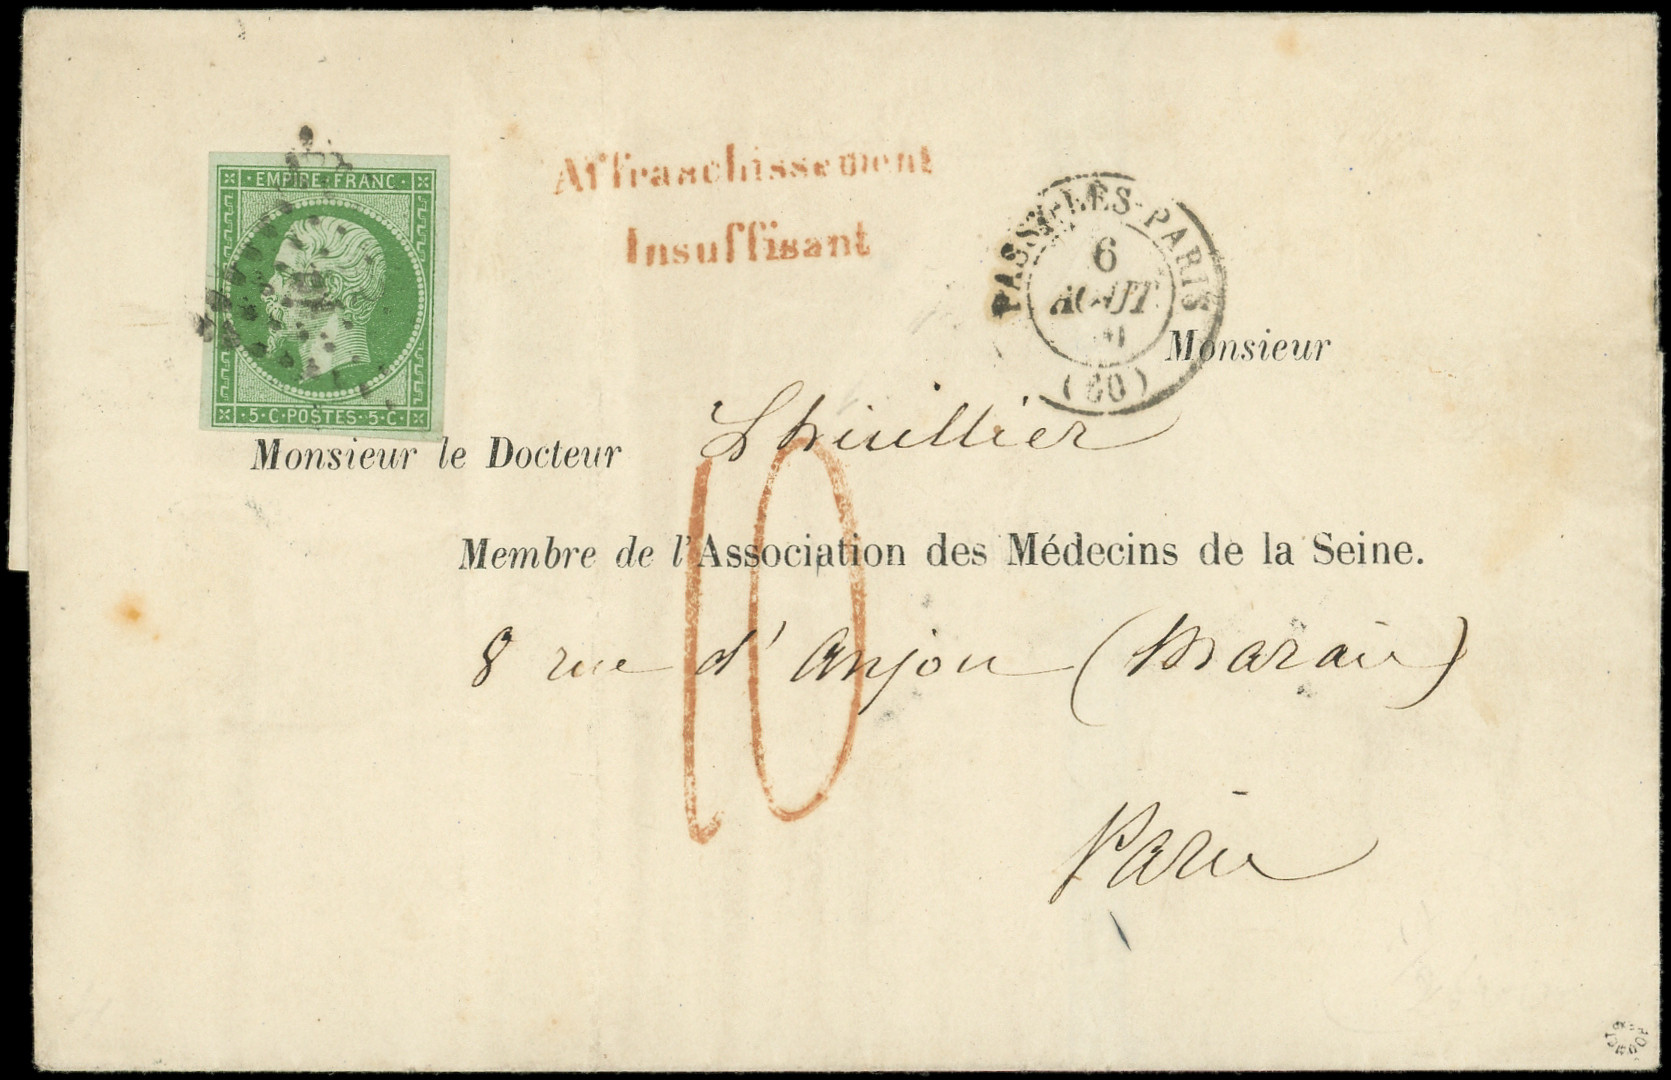 · EMPIRE · FRANC ·
· 5 · C · POSTES · 5 · C ·
Affranchissement
Insuffisant
PASSY-LÈS-PARIS
6
AOUT
(60)
Monsieur
Monsieur le Docteur Lhuillier
Membre de l'Association des Médecins de la Seine.
10
8 rue d'Anjou (Marais)
Paris